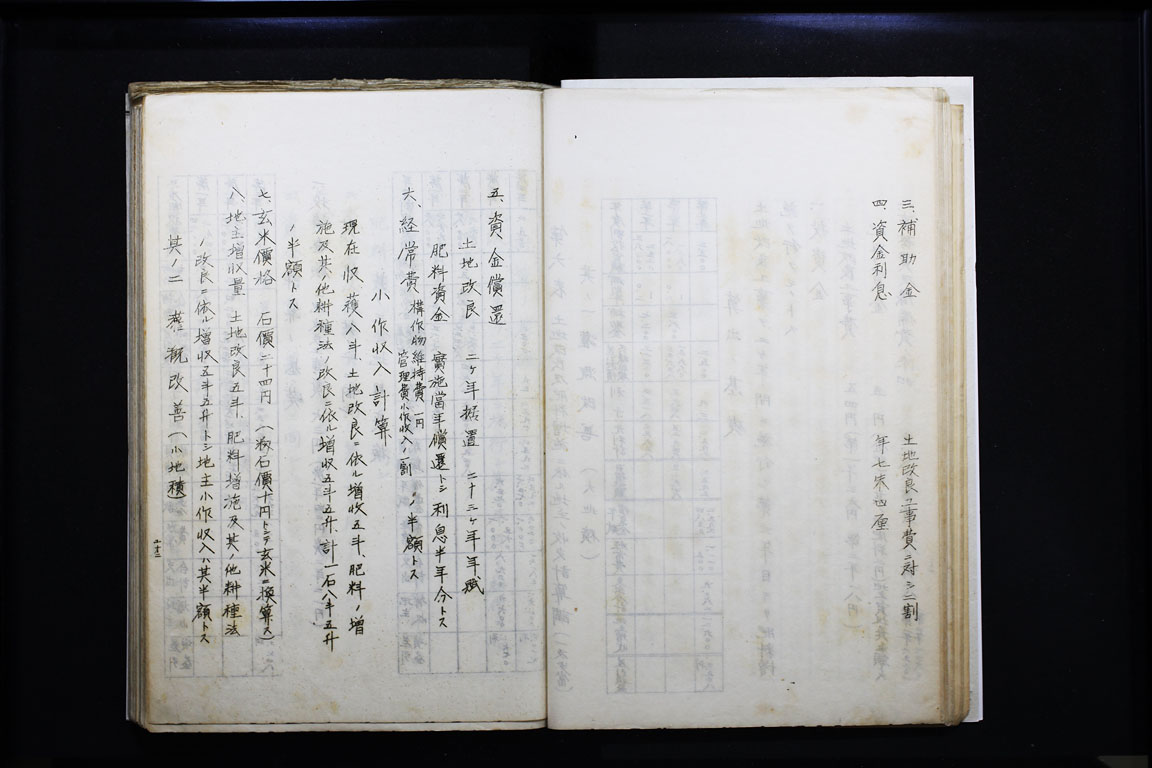 三、補助金 土地改良工事費ニ対シ二割
四 資金利息 年七朱四厘
五、資金償還
土地改良 二ヶ年据置 二十三ヶ年年賦
肥料資金 實施當年償還トシ利息半年分トス
六、経常費 構作物維持費一円 管理費小作收入ノ一割 ノ半額トス
小作收入計算
現在收穫八斗、土地改良ニ依ル増收五斗、肥料ノ増
施及其ノ他耕種法ノ改良ニ依ル増收五斗五升、計一石八斗五升
ノ半額トス
七、玄米價格 石價二十四円(籾石價十円トシテ玄米ニ換算ス)
八、地主増収量 土地改良五斗、肥料増施及其ノ他耕種法
ノ改良ニ依ル増収五斗五升トシ地主小作収入ハ其半額トス
其ノ二 灌漑改善(小地積)